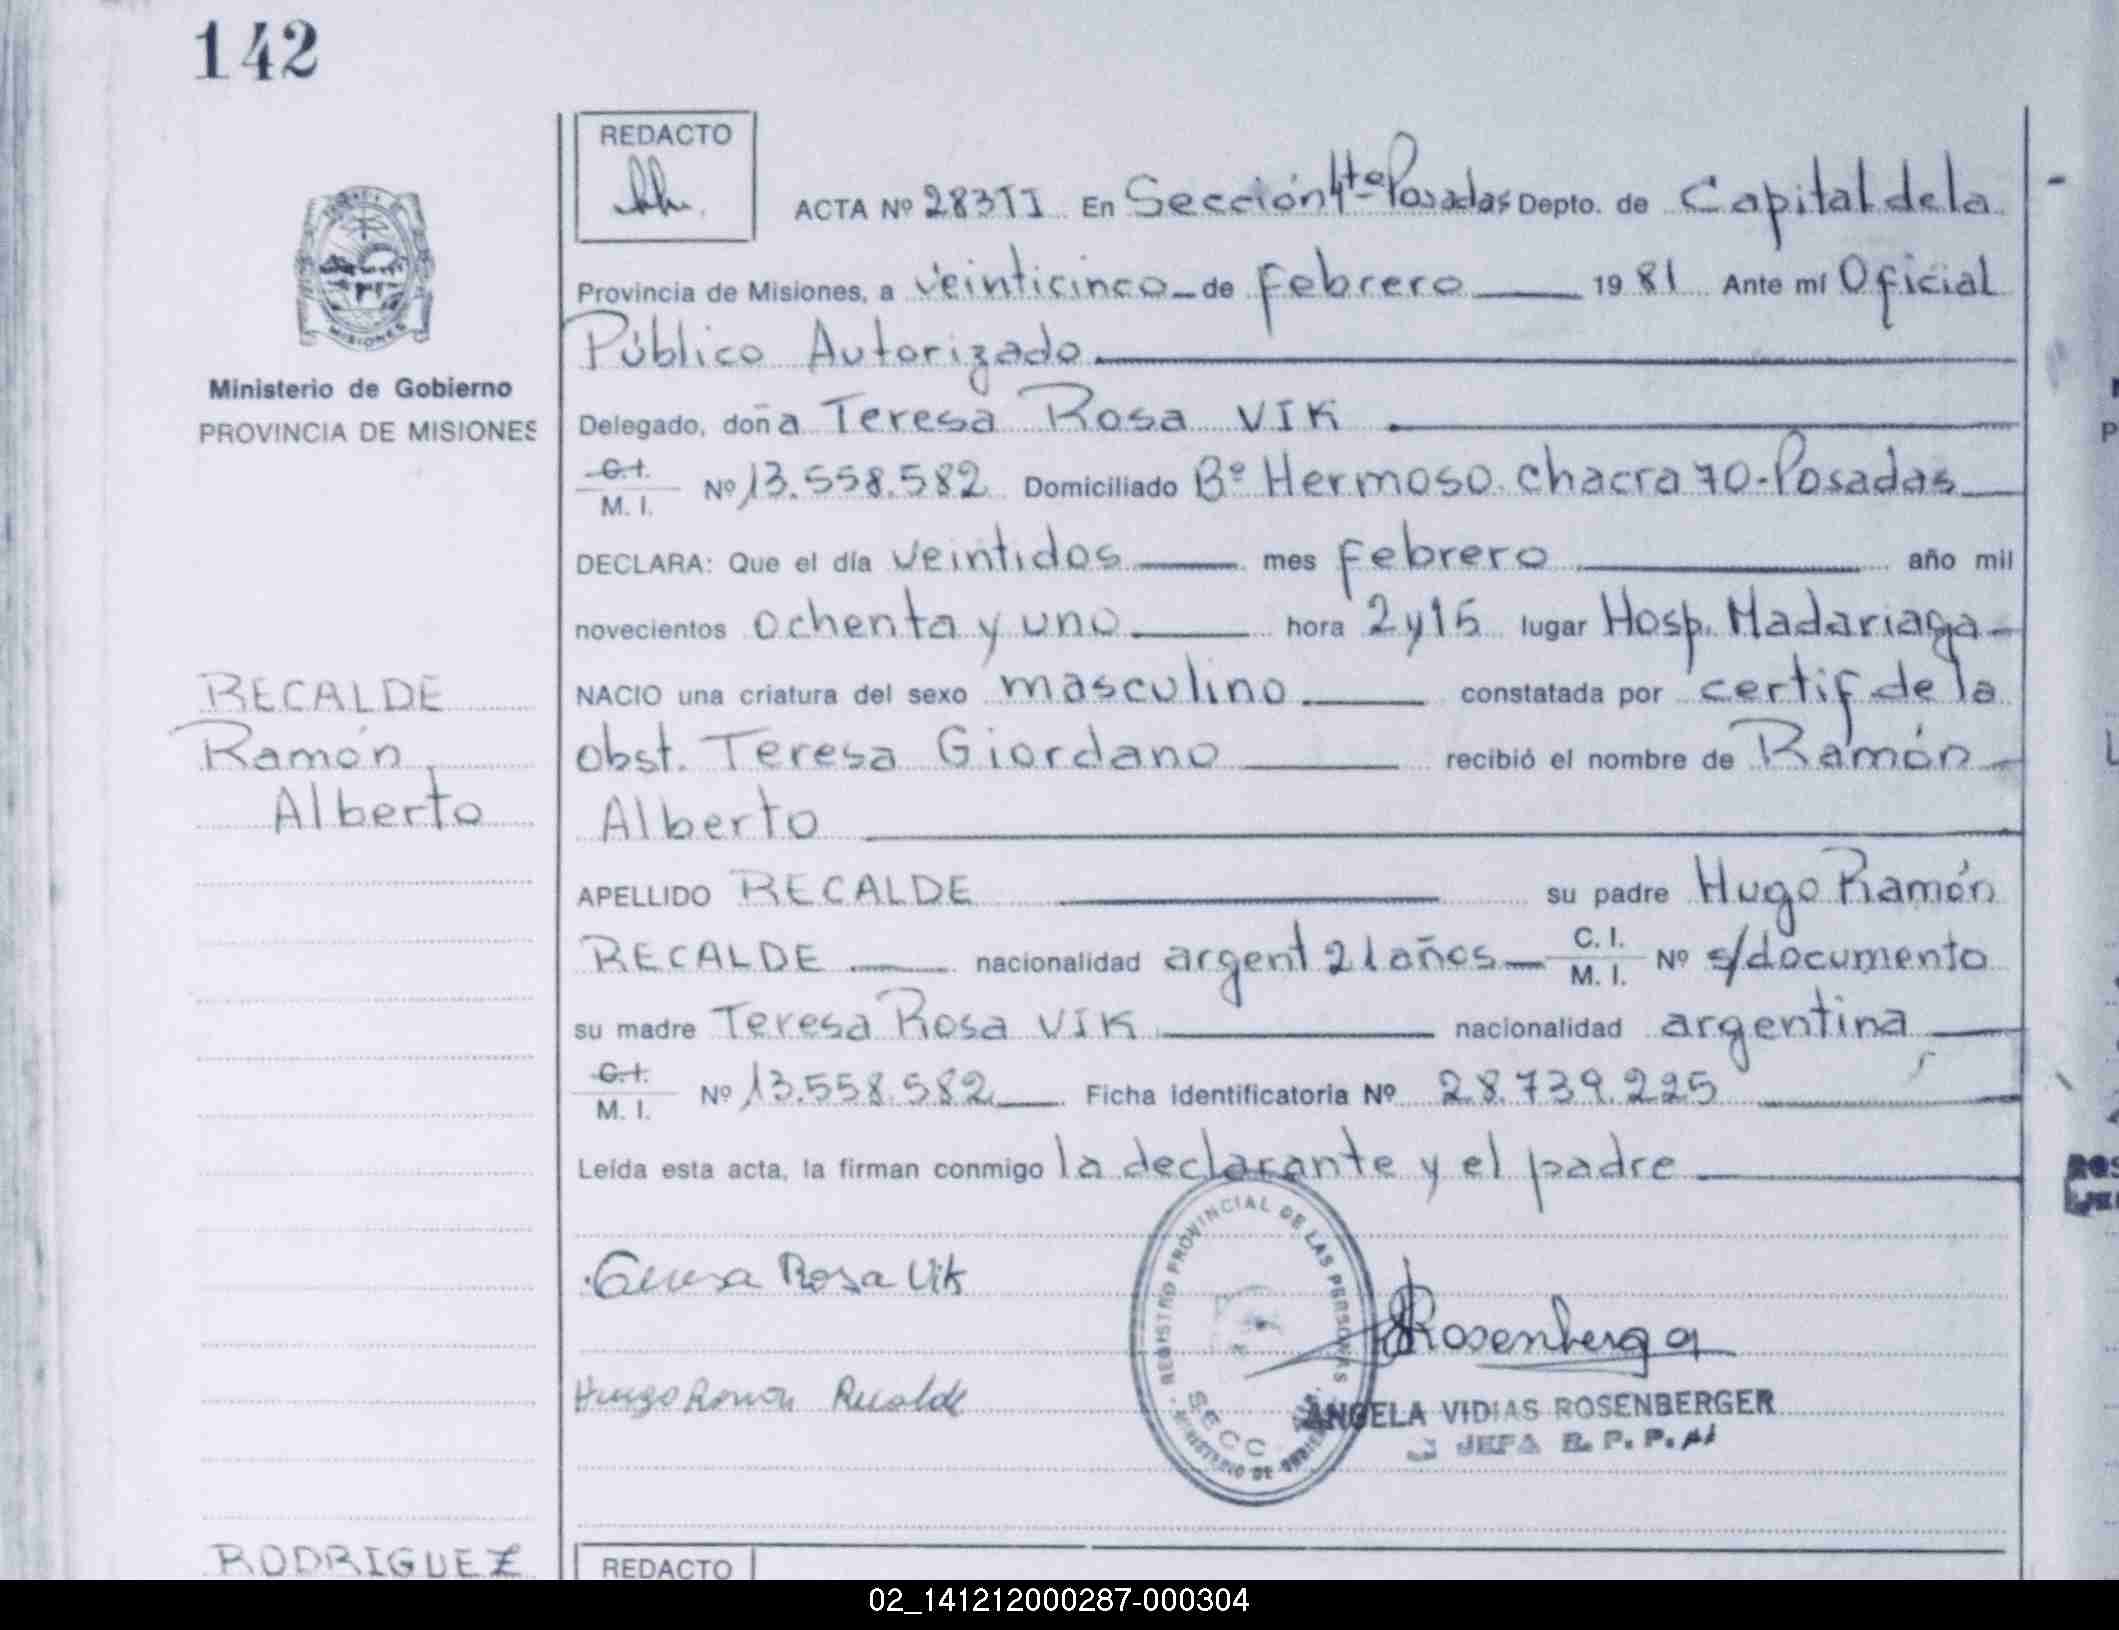 142
REDACTO
ACTA Nº 283TI En Sección 4tª Posadas Depto. de Capital de la
Provincia de Misiones, a veinticinco de febrero 1981 Ante mí Oficial
Público Autorizado
MISIONES
Ministerio de Gobierno
PROVINCIA DE MISIONES
Delegado, doña Teresa Rosa VIK
C.I.
M. I. Nº 13.558.582 Domiciliado Bº Hermoso. chacra 70-Posadas
DECLARA: Que el día veintidos mes febrero año mil
novecientos ochenta y uno hora 2y15 lugar Hosp. Madariaga
RECALDE
Ramón
Alberto
NACIO una criatura del sexo masculino constatada por certif de la
obst. Teresa Giordano recibió el nombre de Ramón
Alberto
APELLIDO RECALDE su padre Hugo Ramón
RECALDE nacionalidad argent 21 años C. I.
M. I. Nº s/documento
su madre Teresa Rosa VIK nacionalidad argentina
C.I.
M. I. Nº 13.558.582 Ficha identificatoria Nº 28.739.225
Leída esta acta, la firman conmigo la declarante y el padre
Teresa Rosa Vik
REGISTRO PROVINCIAL DE LAS PERSONAS
SECC
MINISTERIO DE
Rosenberg
Hugo Ramón Recalde
ANGELA VIDIAS ROSENBERGER
JEFA R. P. P.
RODRIGUEZ
REDACTO
02_141212000287-000304